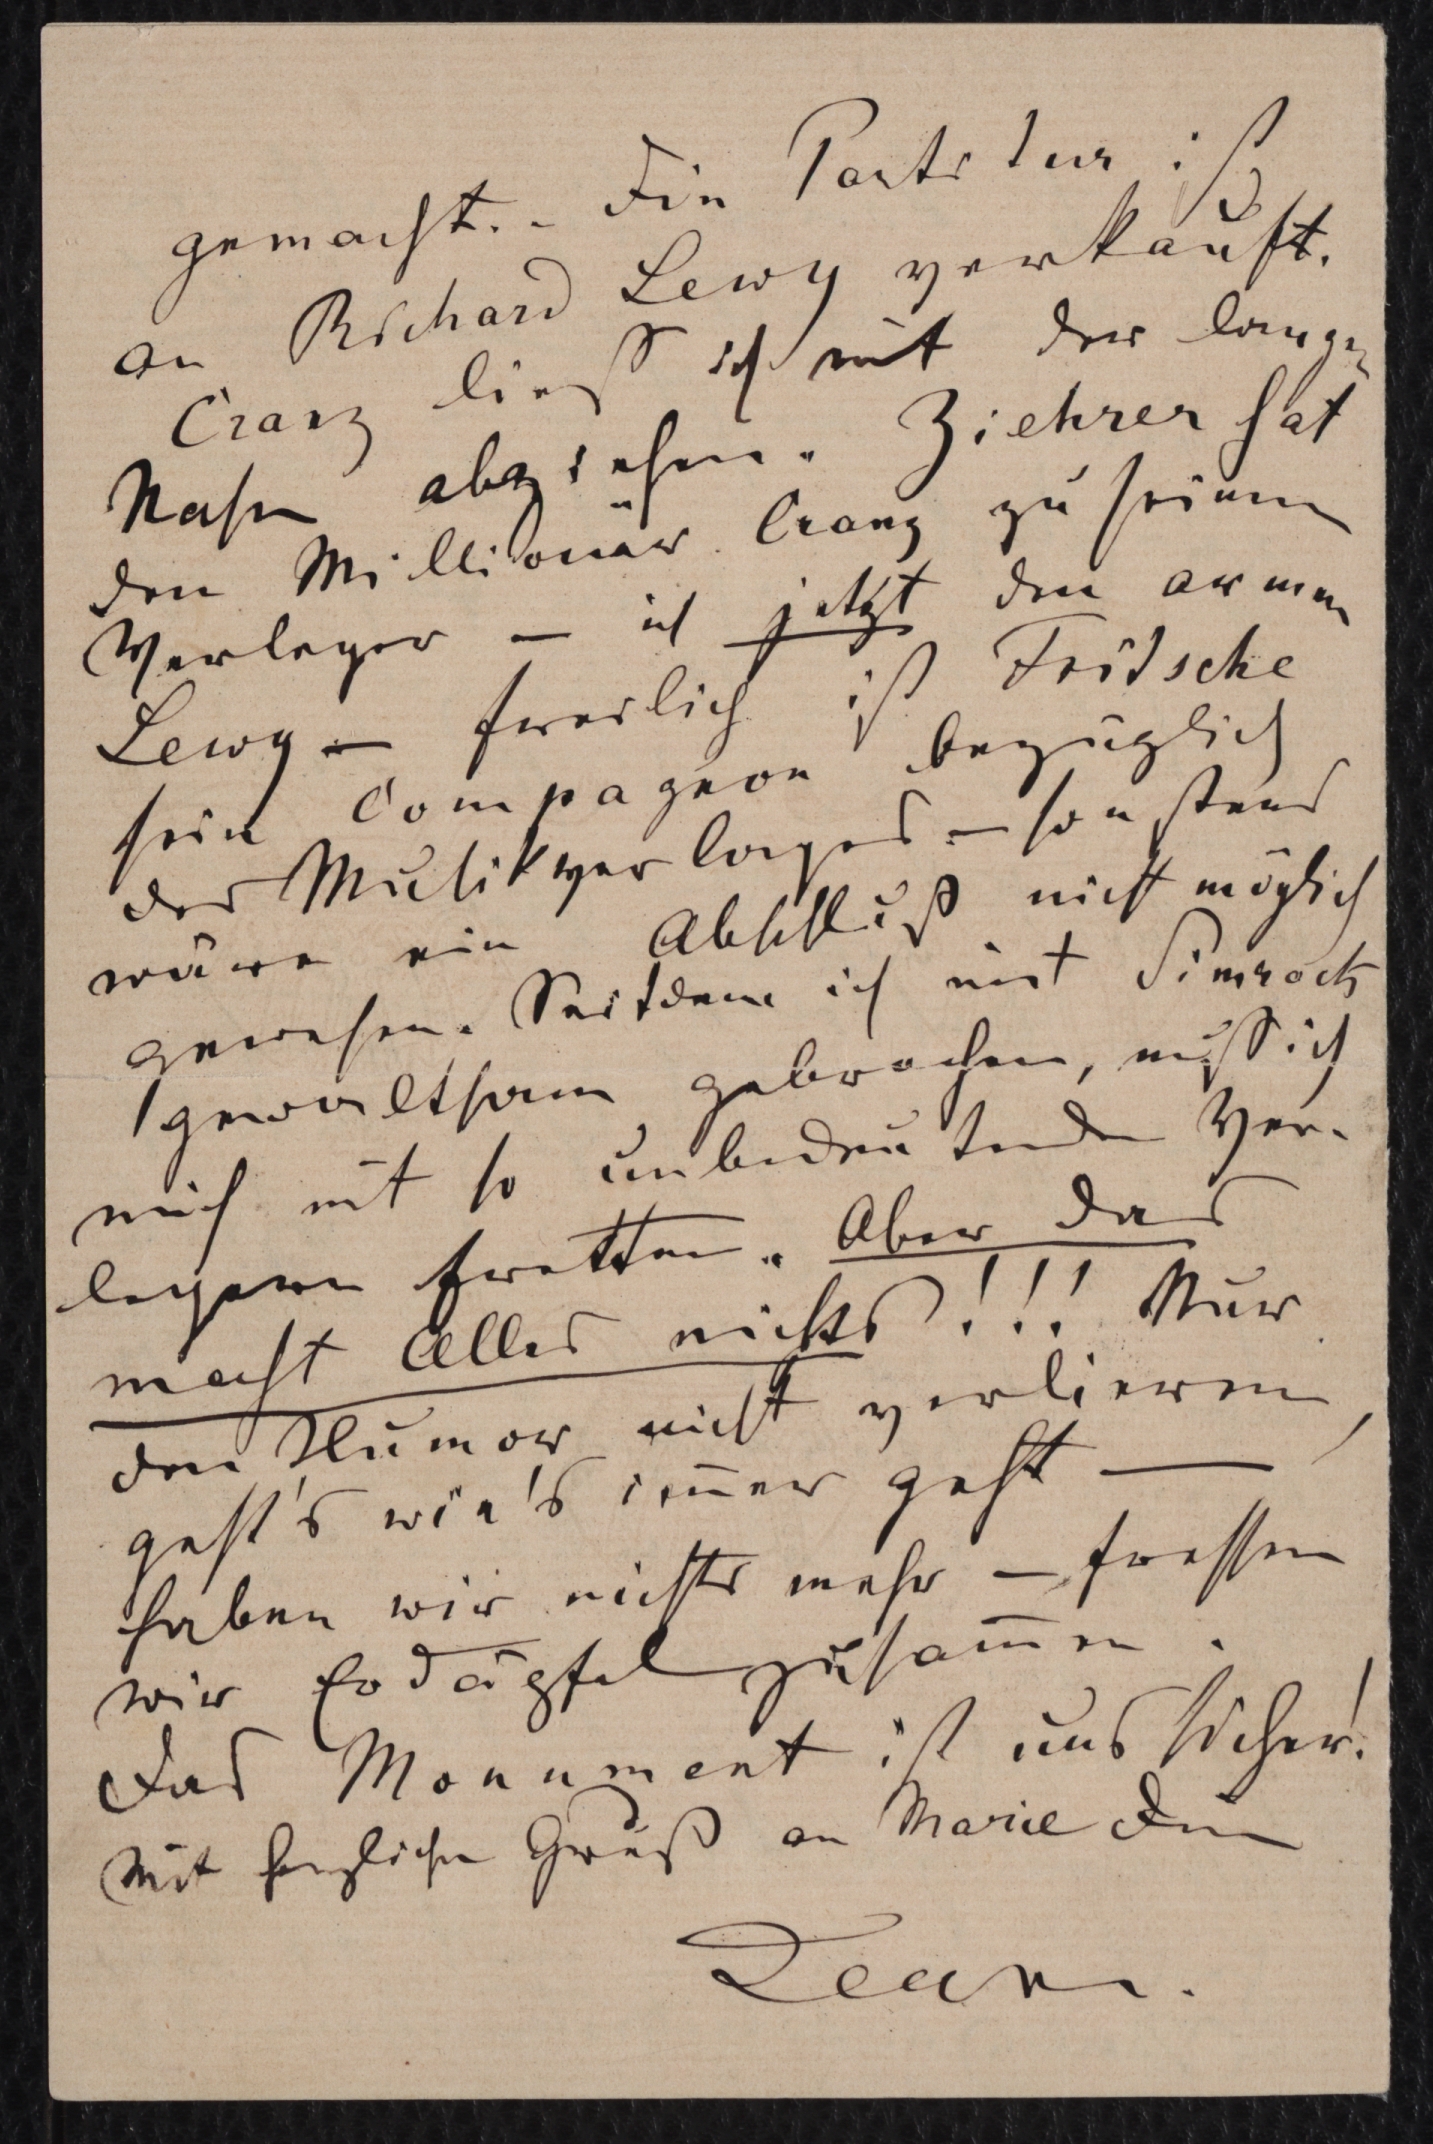 gemacht. – Die Partitur ist
an Richard Lewy verkauft.
Cranz ließ ich mit der langen
Nase abziehen. Ziehrer hat
den Millionär Cranz zu seinem
Verleger – ich jetzt den armen
Lewy – freilich ist Fritsche
sein Compagnon bezüglich
des Musikverlages – sonstens
wäre ein Abschluß nicht möglich
gewesen. Seitdem ich mit Simrock
gewaltsam gebrochen, muß ich
mich mit so unbedeutenden Ver-
legern fretten. Aber das
macht Alles nichts!!! Nur
den Humor nicht verlieren,
geht's wie's im̄er geht —
haben wir nichts mehr – fressen
wir Erdäpfel zusam̄en.
Das Monument ist uns sicher!
Mit herzlichen Gruß an Marie Dein
Jean.